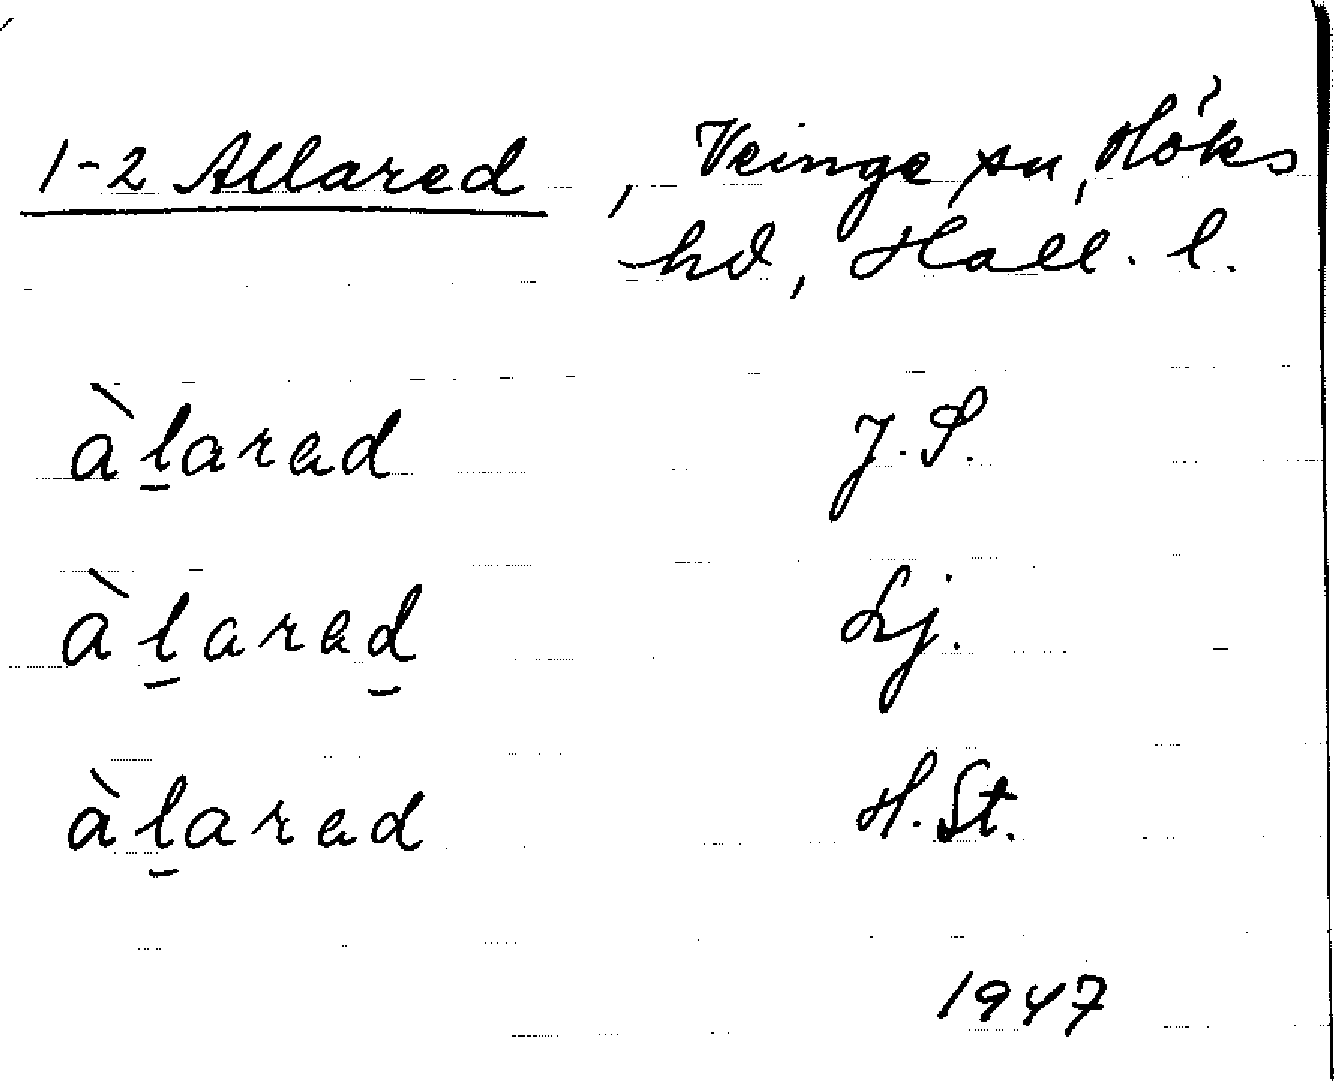 1-2 Allared, Veinge sn, Höks
hd, Hall. l.
àl̲arad J.S.
àl̲arad̲ Lj.
àl̲arad H.St.
1947